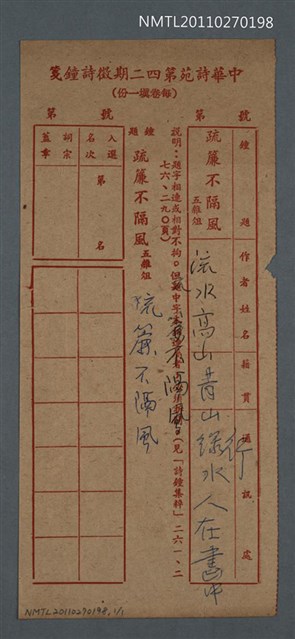 NMTL20110270198
中華詩苑第四二期徵詩鐘箋
（每卷撰一份）
第　號
第　號
鐘題
疏簾不隔風
五雜俎
作者姓名籍貫通訊處
流水高山昔山綠水人在書中
行
說明：題字相連或相對不拘。但題中字
（見「詩鐘集粹」二六一、二
七六、二九〇頁）
簾不隔風
鐘題
疏簾不隔風
五雜俎
疏簾不隔風
入選名次
第　名
詞宗蓋章
NMTL20110270198, 1/1